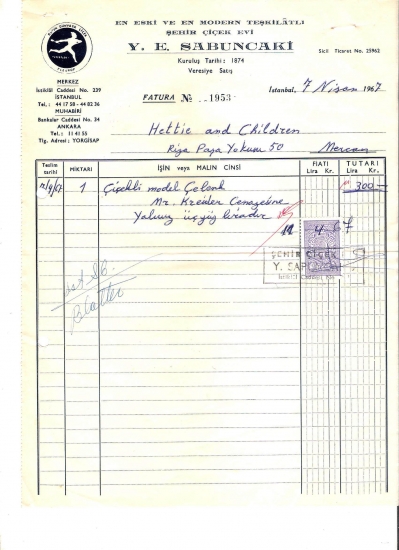 EN ESKİ VE EN MODERN TEŞKİLÂTLI
ŞEHİR ÇİÇEK EVİ
Y. E. SABUNCAKİ
Kuruluş Tarihi: 1874
Veresiye Satış
Sicil Ticaret No. 25962
MERKEZ
İstiklâl Caddesi No. 239
İSTANBUL
Tel.: 44 17 58 - 44 82 36
MUHABİRİ
Bankalar Caddesi No. 34
ANKARA
Tel.: 11 45 55
Tlg. Adresi: YORGİSAP
FATURA № 1953
İstanbul, 7 Nisan 1967
Hettie and Children
Riza Paşa Yokuşu 50 Mercan
Teslim tarihi MİKTARI İŞİN veya MALIN CİNSİ FİATI Lira Kr. TUTARI Lira Kr.
1 Çiçekli model Çelenk 300
Mr. Cenazesine
Yalnız üçyüz liradır
4 67
ŞEHİR ÇİÇEK